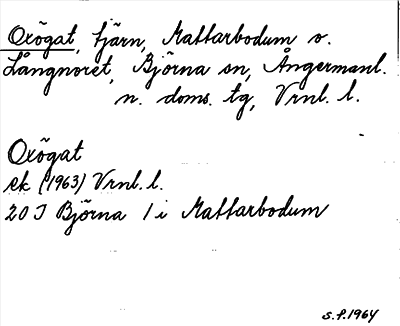 Oxögat, tjärn, Mattarbodum o.
Långnoret, Björna sn, Ångermanl.
n. doms. tg, Vrnl. l.
Oxögat
ek (1963) Vrnl. l.
20 J Björna 1 i Mattarbodum
S.P. 1964